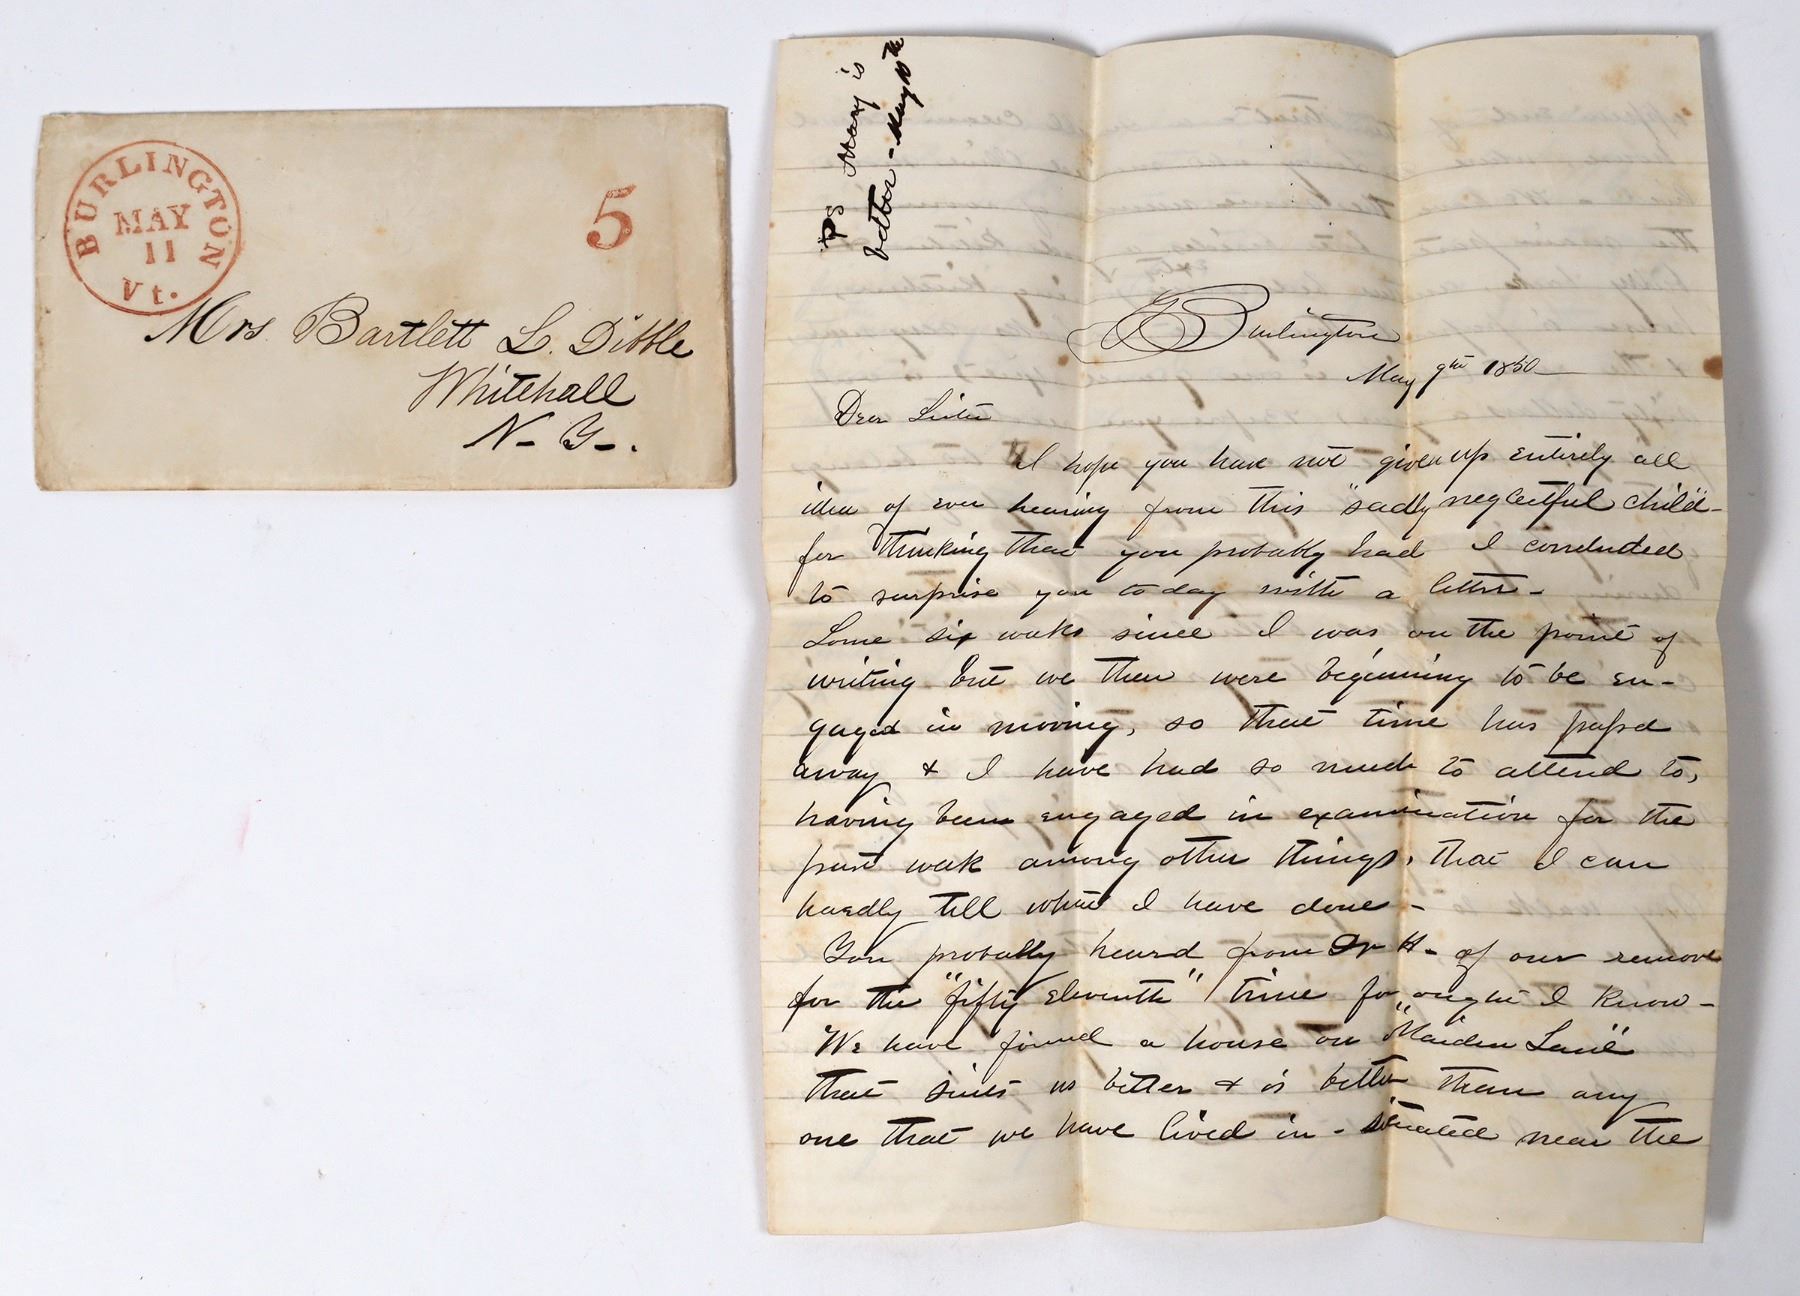 BURLINGTON
MAY
11
Vt.
5
Mrs. Bartlett L. Dibble
Whitehall
N. Y.
PS Mary is
better - May 10th
Burlington
May 9th 1850
Dear Sister
I hope you have not given up entirely all
idea of ever hearing from this "sadly neglectful child" -
for thinking that you probably had I concluded
to surprise you to day with a letter -
Some six weeks since I was on the point of
writing but we then were beginning to be en-
gaged in moving, so that time has passed
away & I have had so much to attend to,
having been engaged in examination for the
past week among other things, that I can
hardly tell what I have done -
You probably heard from Dr H - of our remove
for the "fifty eleventh" time for ought I know -
We have found a house on "Maiden Lane"
that suits us better & is better than any
one that we have lived in - situated near the